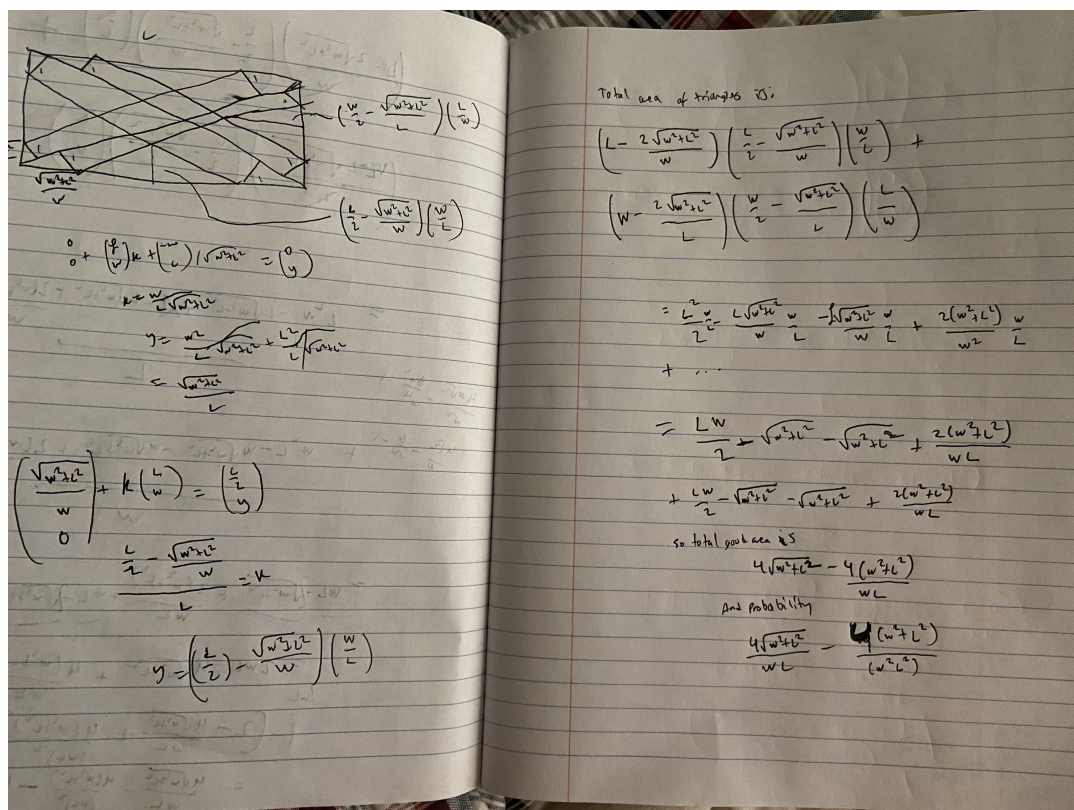 L
(w/2 - √(w²+L²)/L)(L/w)
√(w²+L²)/L
(L/2 - √(w²+L²)/w)(w/L)
y = w²/(L√(w²+L²)) + L²/(L√(w²+L²))
= √(w²+L²)/L
(√(w²+L²)/w, 0) + k(L, w) = (L/2, y)
(L/2 - √(w²+L²)/w)/L = k
y = ((L/2) - √(w²+L²)/w)(w/L)
Total area of triangles is:
(L - 2√(w²+L²)/w)(L/2 - √(w²+L²)/w)(w/L) +
(w - 2√(w²+L²)/L)(w/2 - √(w²+L²)/L)(L/w)
= L²/2 w/L - L√(w²+L²)/w w/L - L√(w²+L²)/w w/L + 2(w²+L²)/w² w/L
+ ...
= LW/2 - √(w²+L²) - √(w²+L²) + 2(w²+L²)/wL
+ LW/2 - √(w²+L²) - √(w²+L²) + 2(w²+L²)/wL
so total good area is
4√(w²+L²) - 4(w²+L²)/WL
And probability
4√(w²+L²)/WL - 4(w²+L²)/(w²L²)